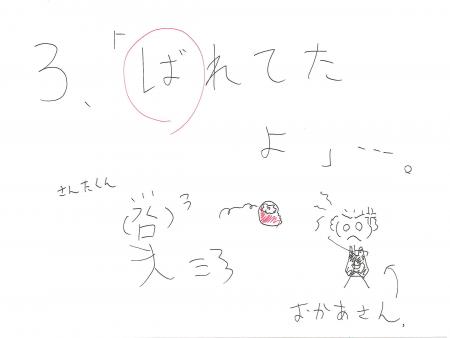 3、「ばれてた
よ」…。
さんたくん
おかあさん,